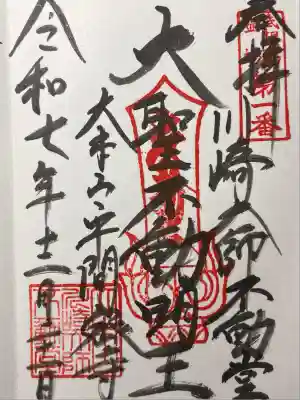 奉拝
第一番
川崎大師不動堂
大聖不動明王
大本山平間寺
令和七年十二月二十二日